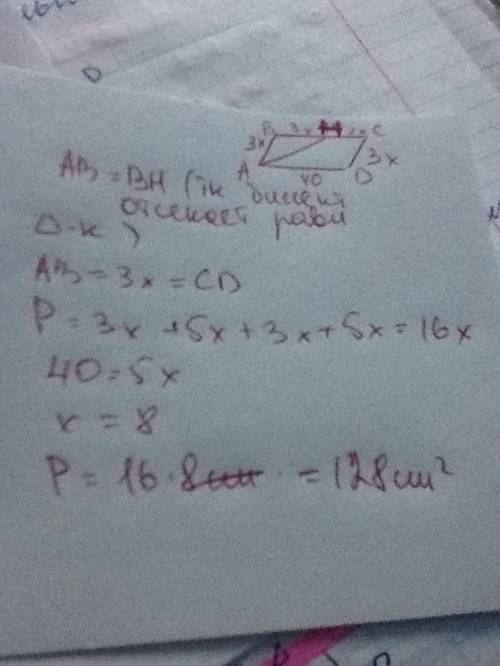 B 3x H 2x C
3x 3x
A 40 D
AB = BH (тк биссект
отсекает равн
Δ-к)
AB = 3x = CD
P = 3x + 5x + 3x + 5x = 16x
40 = 5x
x = 8
P = 16 · 8 = 128 cm²